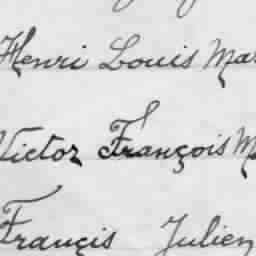 Henri Louis Mar
Victor François M
Francis Julien